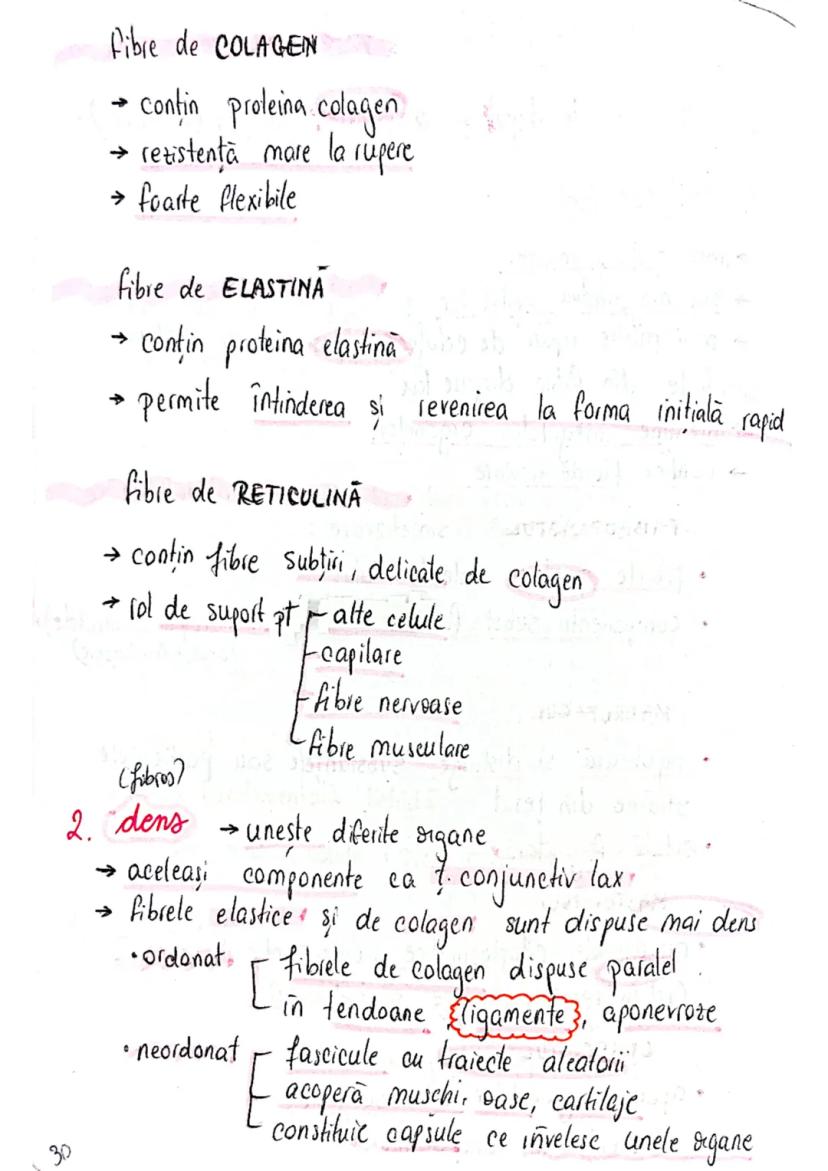 fibre de COLAGEN
→ conțin proteina colagen
→ rezistență mare la rupere
→ foarte flexibile
fibre de ELASTINĂ
→ conțin proteina elastină
→ permite întinderea și revenirea la forma inițială rapid
fibre de RETICULINĂ
→ conțin fibre subțiri, delicate, de colagen
→ rol de suport pt alte celule
capilare
fibre nervoase
fibre musculare
(fibros?)
2. dens → unește diferite organe
→ aceleași componente ca ț. conjunctiv lax
→ fibrele elastice și de colagen sunt dispuse mai dens
• ordonat fibrele de colagen dispuse paralel
în tendoane, ligamente, aponevroze
• neordonat fascicule cu traiecte aleatorii
acoperă mușchi, oase, cartilaje
constituie capsule ce învelesc unele organe
30